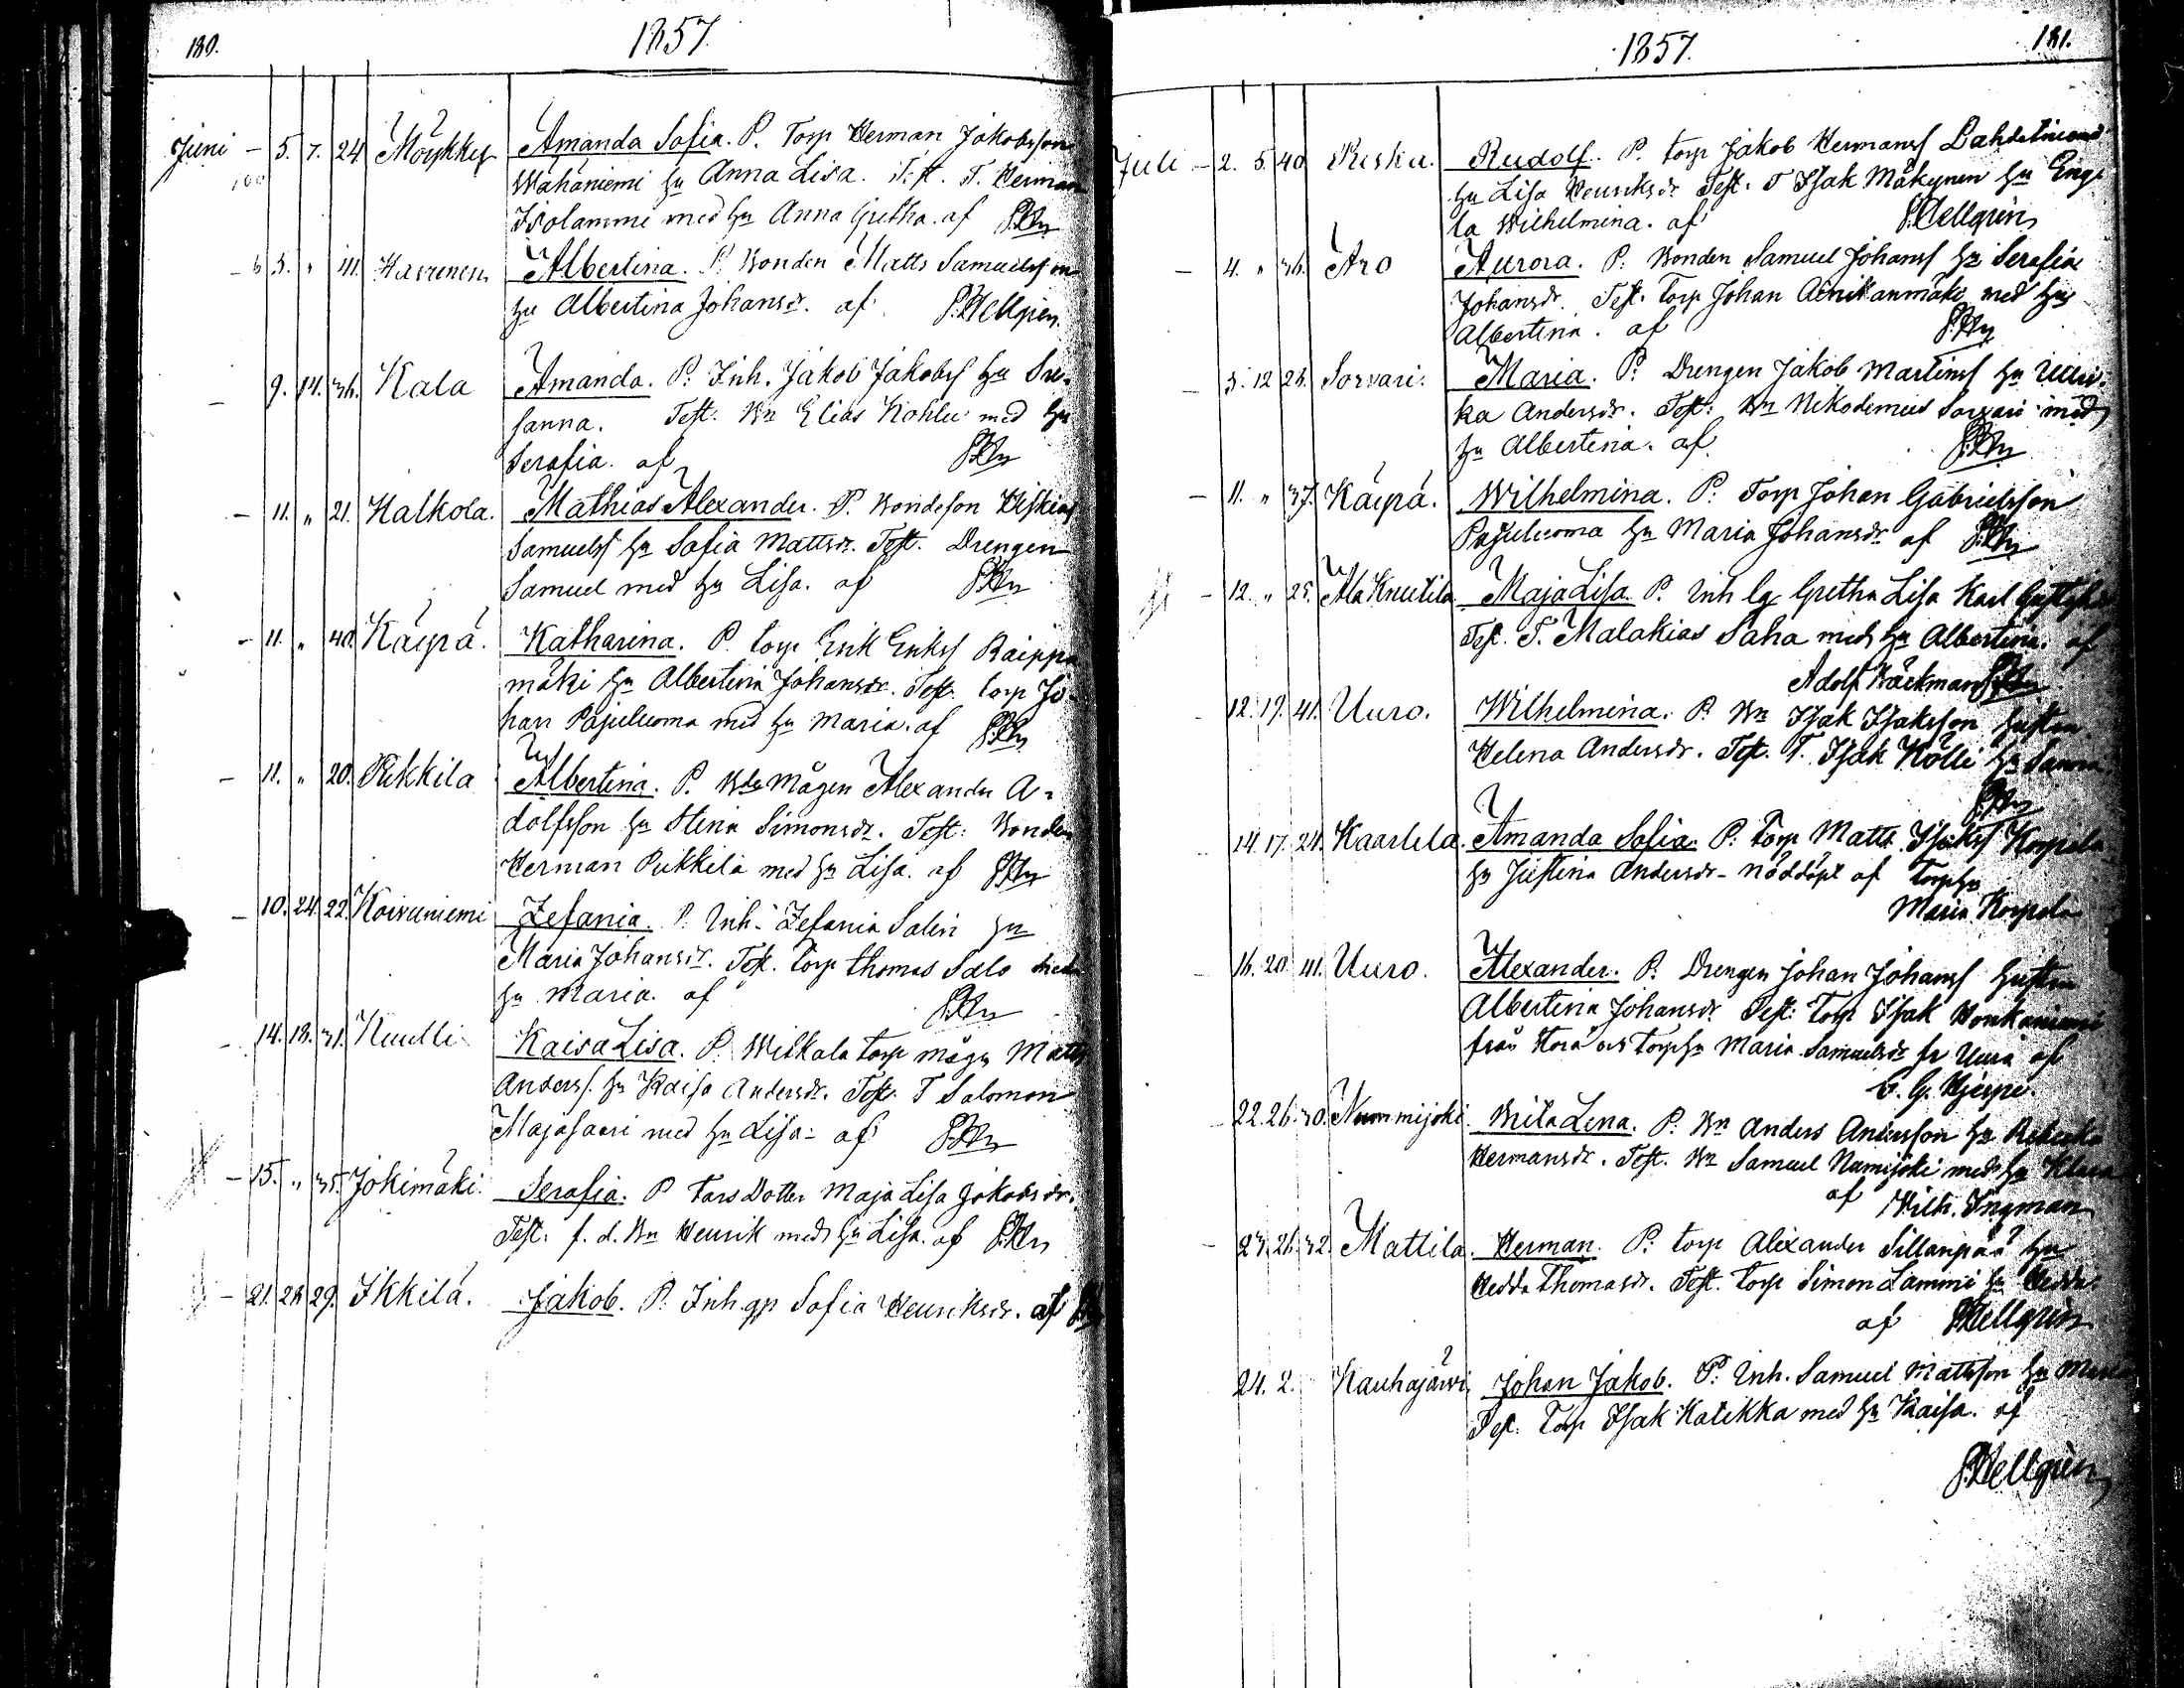 180.
1857.
Juni - 5. 7. 24 Möykky Amanda Sofia. P. Torp Herman Jakobsson
Wähäniemi hu Anna Lisa. Test. T. Herman
Isolammi med hu Anna Gretha. af
5. " 41. Havunen Albertina. P. Bonden Matts Samuelsson
hu Albertina Johansdr. af P. Hellgren
- 9. 14. 36. Kala Amanda. P. Inh. Jakob Jakobss hu Su-
sanna. Test. Bn Elias Kohlu med hu
Serafia. af
- 11. " 21. Kalkola. Mathias Alexander. P. Bondeson Hiskias
Samuelss hu Sofia Mattsdr. Test. Drengen
Samuel med hu Lisa. af
- 11. " 40. Käyrä. Katharina. P. torp Erik Erikss Raippa
mäki hu Albertina Johansdr. Test. torp Jo-
han Pajuluoma med hu Maria. af
- 11. " 20. Pukkila Albertina. P. Bde mågen Alexander A-
dolfsson hu Stina Simonsdr. Test: Bonden
Herman Pukkila med hu Lisa. af
- 10. 24. 22. Koivuniemi Zefania. P. Inh. Zefania Salin hu
Maria Johansdr. Test. torp Thomas Salo med
hu Maria. af
14. 18. 31. Knulli Kaisa Lisa. P. Wilkala torp mågen Matts
Anderss. hu Kaisa Andersdr. Test. T Salomon
Majasaari med hu Lisa. af
- 15. " 35. Jokimäki. Serafia. P Tars Dotter Maja Lisa Jakobsdr.
Test. f. d. Bn Henrik med hu Lisa. af
- 21. 28. 29. Ikkilä. Jakob. P. Inh. gp Sofia Henriksdr. af
1857.
181.
Juli - 2. 5. 40 Riska. Rudolf. P. torp Jakob Hermanss Lahdeluoma
hu Lisa Henriksdr Test. T Isak Mäkynen hu Enge
la Wilhelmina. af P. Hellgren
- 4. " 36. Aro Aurora. P. Bonden Samuel Johanss hu Serafia
Johansdr. Test. torp Johan med hu
Albertina. af
- 3. 12 26. Sorvari. Maria. P. Drengen Jakob Martinss hu Ulri-
ka Andersdr. Test: Bn Nikodemus Sorvari med
hu Albertina. af
- 11. " 37. Käyrä. Wilhelmina. P: Torp Johan Gabrielsson
Pajuluoma hu Maria Johansdr af
- 12. " 25. Ala Knuutila Maja Lisa. P. Inh lg Gretha Lisa Karl
Test. T. Malakias Saha med hu Albertina. af
Adolf Bäckman
12. 19. 41. Uuro. Wilhelmina. P. Bn Isak Isaksson hustrun
Helena Andersdr. Test. T. Isak Kölli hu Sanna.
14. 17. 24. Kaarlela. Amanda Sofia. P: Torp Matts Isakss Korpela
hu Justina Andersdr - nöddöpt af Torphu
Maria Korpela
- 16. 20. 41. Uuro. Alexander. P: Drengen Johan Johanss hustru
Albertina Johansdr Test: Torp Isak Honkaniemi
från och Torphu Maria Samuelsdr fr Uuro af
C. G. Hjerpe.
22. 26. 30. Nummijoki. Brita Lena. P. Bn Anders Andersson hu Rebecka
Hermansdr. Test. Bn Samuel Numijoki med hu Klara
af Wilh. Ingman
- 23. 26. 32. Mattila. Herman. P: torp Alexander Sillanpää hu
Hedda Thomasdr. Test. torp Simon Lammi hu Hedda.
af P. Hellgren
24. 2. Kauhajärvi. Johan Jakob. P: Inh. Samuel Mattsson hu Maria
Test. Torp Isak Katikka med hu Kaisa. af
P. Hellgren